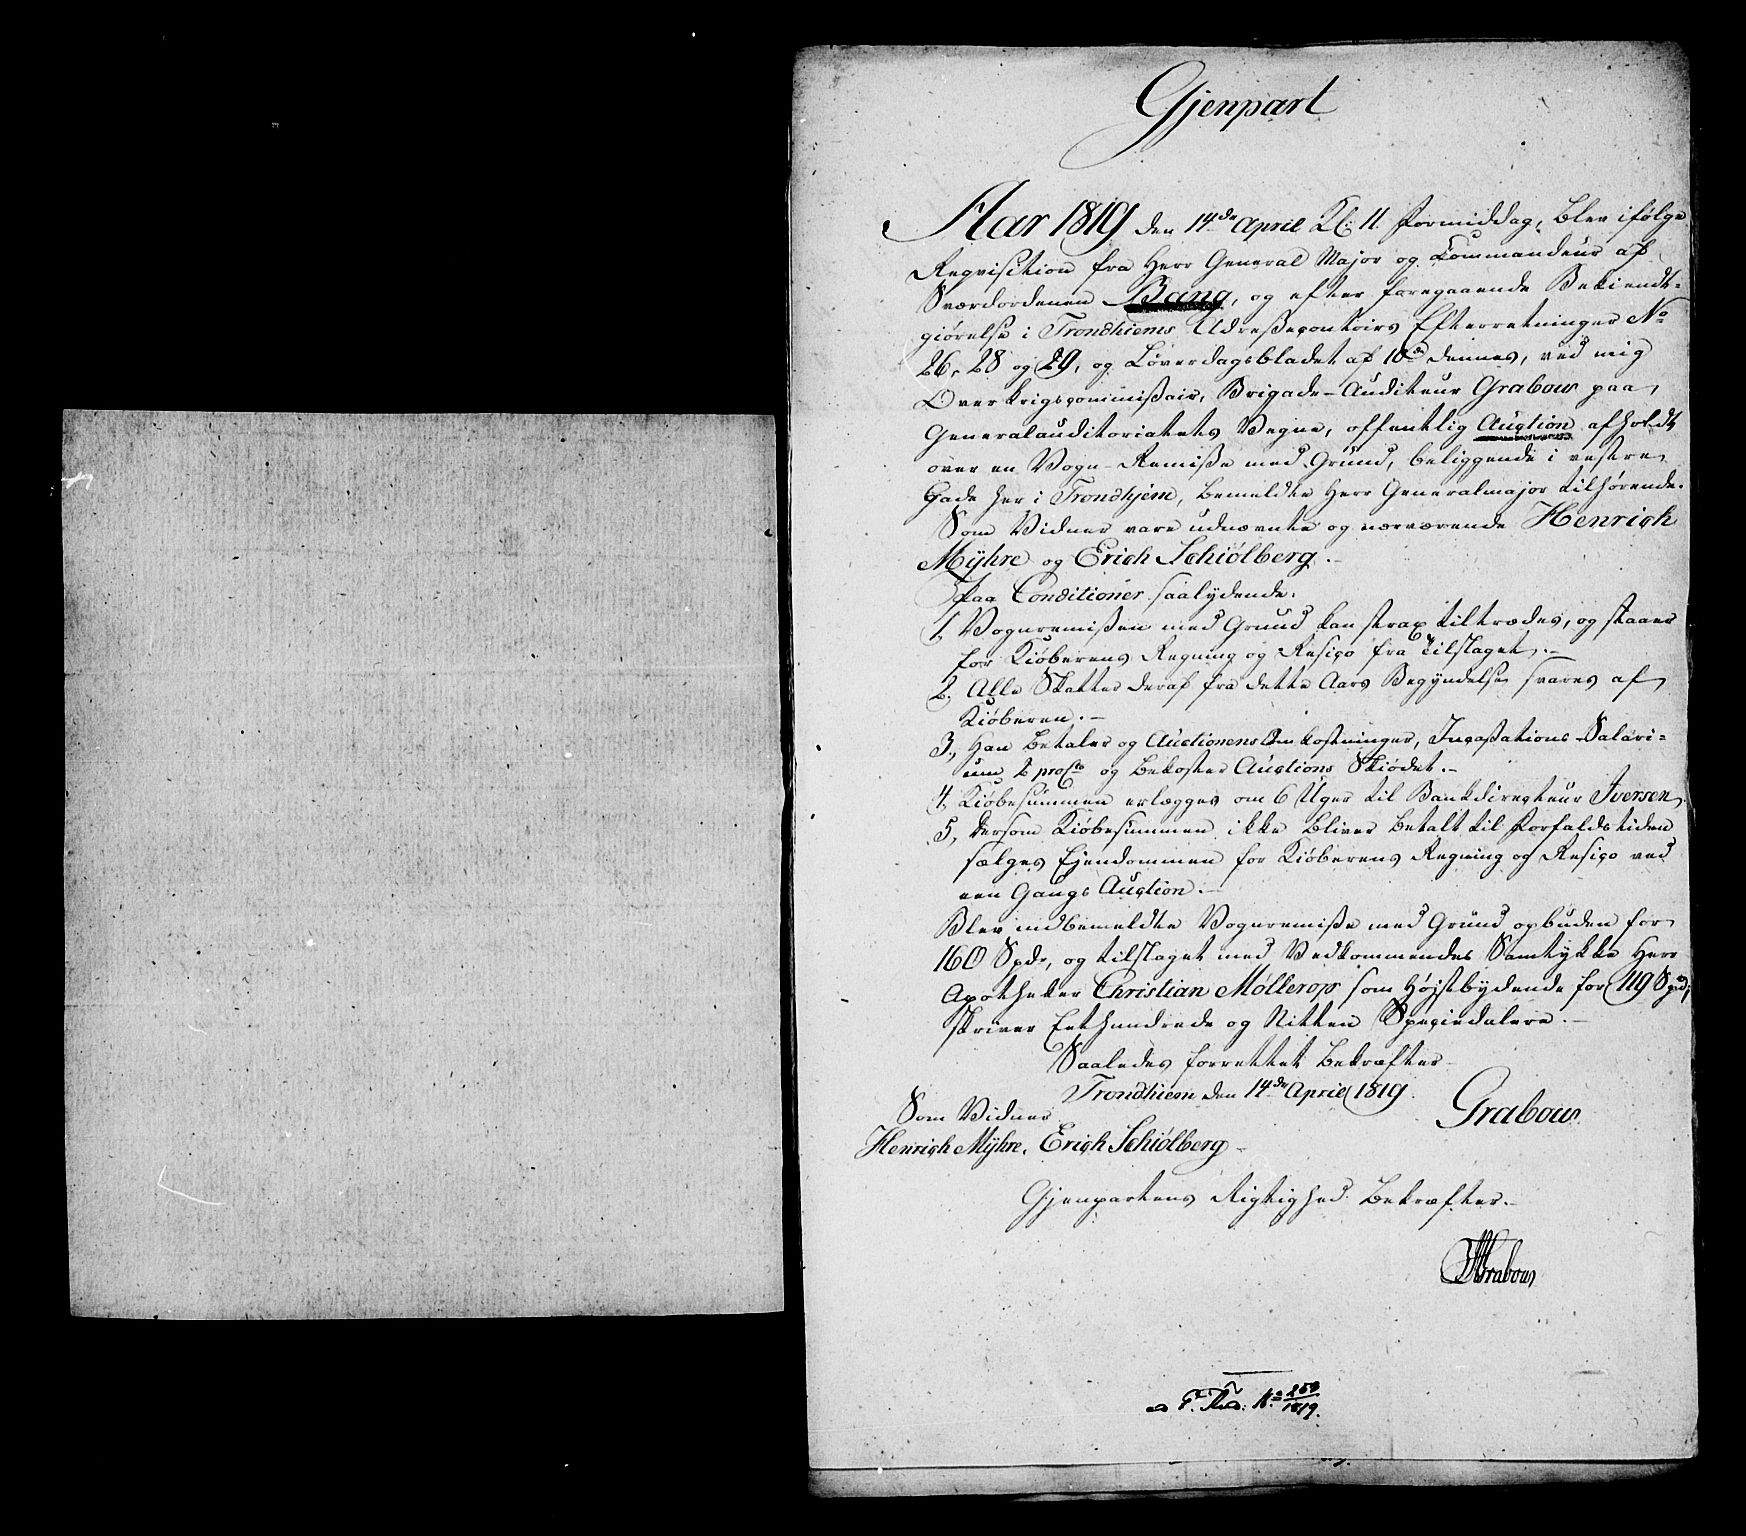 Gjenpart
Aar 1819 den 14de April Kl: 11 Formiddag, blev ifølge
Reqvisition fra Herr General Major og Commandeur af
Sværdordenen Bang, og efter foregaaende Bekiendt-
giørelse i Trondhiems Adreßecontoirs Efterretninger No
26, 28 og 29, og Løverdagsbladet af 10de dennes, ved mig
Overkrigscommißair, Brigade-Auditeur Grabow paa
Generalauditoriatets Vegne, offentlig Auction afholdt
over en Vogn-Remiße med Grund, beliggende i vestre
Gade her i Trondhjem, bemeldte Herr Generalmajor tilhørende.
Som Vidner vare udnævnte og nærværende Henrich
Mÿhre og Erich Schiølberg.
Paa Conditioner saalydende:
1, Vognremißen med Grund kan strax tiltrædes, og staaer
for Kiøberens Regning og Resico fra Tilslaget.-
2, Alle Skatter deraf fra dette Aars Begyndelse svares af
Kiøberen.-
3, Han betaler og Auctionens Omkostninger, Incaßations-Salari-
um 2 procto og bekoster Auctions Skiødet.-
4, Kiøbesummen erlægges om 6 Uger til Bankdirecteur Iversen
5, Dersom Kiøbesummen ikke bliver betalt til Forfaldstiden
sælges Ejendommen for Kiøberens Regning og Resico ved
een Gangs Auction.-
Blev indbemeldte Vognremiße med Grund opbuden for
160 Spd, og tilslaget med Vedkommendes Samtykke Herr
Apotheker Christian Møllerop som Højstbydende for 119 Spd,
skriver Eethundrede og Nitten Speciedalere.-
Saaledes forrettet bekræfter
Trondhiem den 14de April 1819.
Grabow
Som Vidner
Henrich Mÿhre. Erich Schiølberg-
Gjenpartens Rigtighed bekræfter.-
Grabow
No 259/1819.